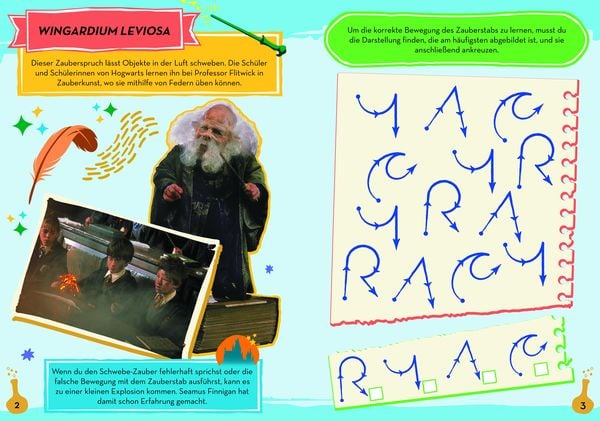 WINGARDIUM LEVIOSA
Dieser Zauberspruch lässt Objekte in der Luft schweben. Die Schüler
und Schülerinnen von Hogwarts lernen ihn bei Professor Flitwick in
Zauberkunst, wo sie mithilfe von Federn üben können.
Wenn du den Schwebe-Zauber fehlerhaft sprichst oder die
falsche Bewegung mit dem Zauberstab ausführst, kann es
zu einer kleinen Explosion kommen. Seamus Finnigan hat
damit schon Erfahrung gemacht.
2
Um die korrekte Bewegung des Zauberstabs zu lernen, musst du
die Darstellung finden, die am häufigsten abgebildet ist, und sie
anschließend ankreuzen.
3